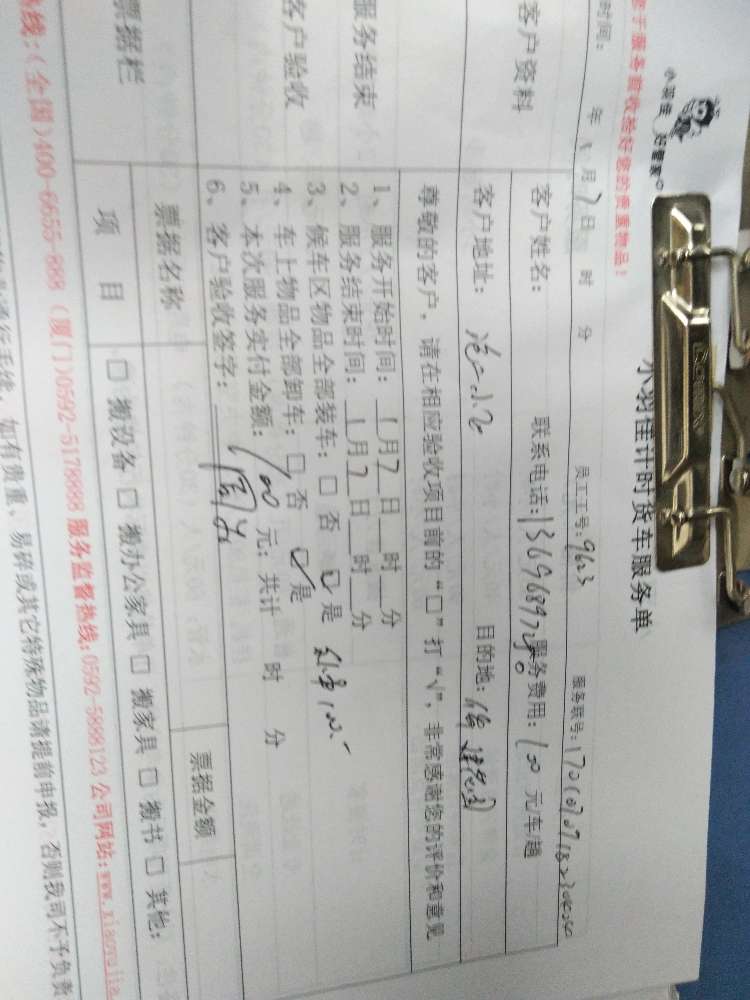 小羽佳 好管家
小羽佳计时货车服务单
您于服务前收拾好您的贵重物品!
时间: 年 1 月 7 日 时 分 员工工号: 9623 服务联号:
客户资料
客户姓名: 联系电话: 服务费用: 100 元车/趟
客户地址: 目的地:
尊敬的客户, 请在相应验收项目前的 “□” 打 “√”, 非常感谢您的评价和意见
服务结束
客户验收
1、服务开始时间: 1 月 7 日 时 分
2、服务结束时间: 1 月 7 日 时 分
3、候车区物品全部装车: □ 否 ☑ 是
4、车上物品全部卸车: □ 否 ☑ 是
5、本次服务实付金额: 100 元; 共计 时 分
6、客户验收签字:
票据栏
票据名称 票据金额
项 目 □ 搬设备 □ 搬办公家具 □ 搬家具 □ 搬书 □ 其他:
热线:(全国)400-6655-888 (厦门)0592-5178888 服务监督热线:0592-5888123 公司网站:www.xiaoyujia.
如有贵重、易碎或其它特殊物品请提前申报, 否则我司不予负责